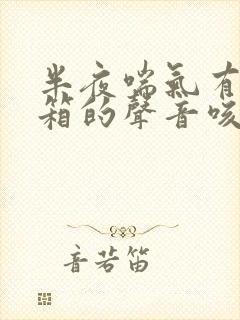 半夜喘氣有
箱的聲音咳
音若笛